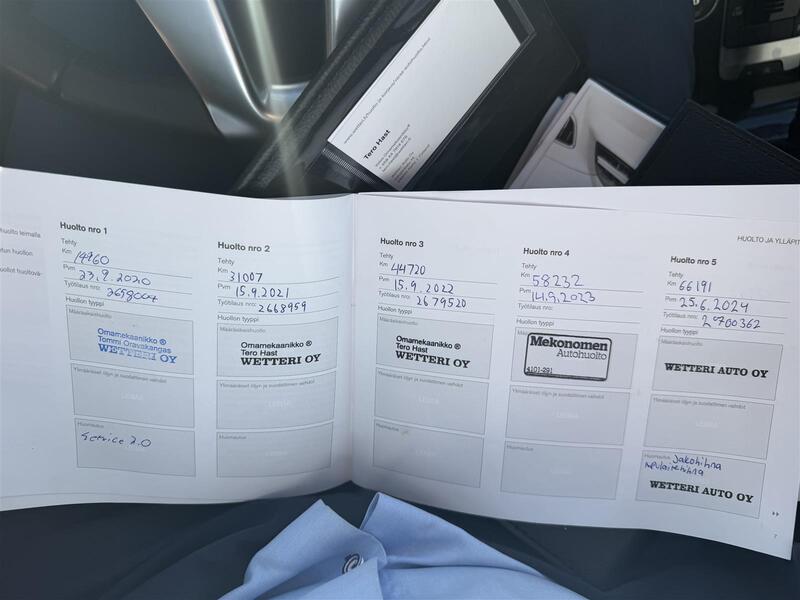 www.wetteri.fi/huolto-ja-korjaus/varaa-autohuolto-heno
Tero Hast
HUOLTO JA YLLÄPIT
Huolto nro 1
Tehty
Km 14960
Pvm 23.9.2020
Työtilaus nro: 2658004
Huollon tyyppi
Määräaikaishuolto
Omamekaanikko ®
Tommi Oravakangas
WETTERI OY
Ylimääräiset öljyn ja suodattimen vaihdot
LEIMA
Huomautus
Service 2.0
Huolto nro 2
Tehty
Km 31007
Pvm 15.9.2021
Työtilaus nro: 2668959
Huollon tyyppi
Määräaikaishuolto
Omamekaanikko ®
Tero Hast
WETTERI OY
Ylimääräiset öljyn ja suodattimen vaihdot
LEIMA
Huomautus
Huolto nro 3
Tehty
Km 44720
Pvm 15.9.2022
Työtilaus nro: 2679520
Huollon tyyppi
Määräaikaishuolto
Omamekaanikko ®
Tero Hast
WETTERI OY
Ylimääräiset öljyn ja suodattimen vaihdot
LEIMA
Huomautus
Huolto nro 4
Tehty
Km 58232
Pvm 14.9.2023
Työtilaus nro:
Huollon tyyppi
Mekonomen
Autohuolto
4101-291
Ylimääräiset öljyn ja suodattimen vaihdot
LEIMA
Huomautus
Huolto nro 5
Tehty
Km 66191
Pvm 25.6.2024
Työtilaus nro: 2700362
Huollon tyyppi
Määräaikaishuolto
WETTERI AUTO OY
Ylimääräiset öljyn ja suodattimen vaihdot
LEIMA
Huomautus Jakohihna
Apulaitehihna
WETTERI AUTO OY
7